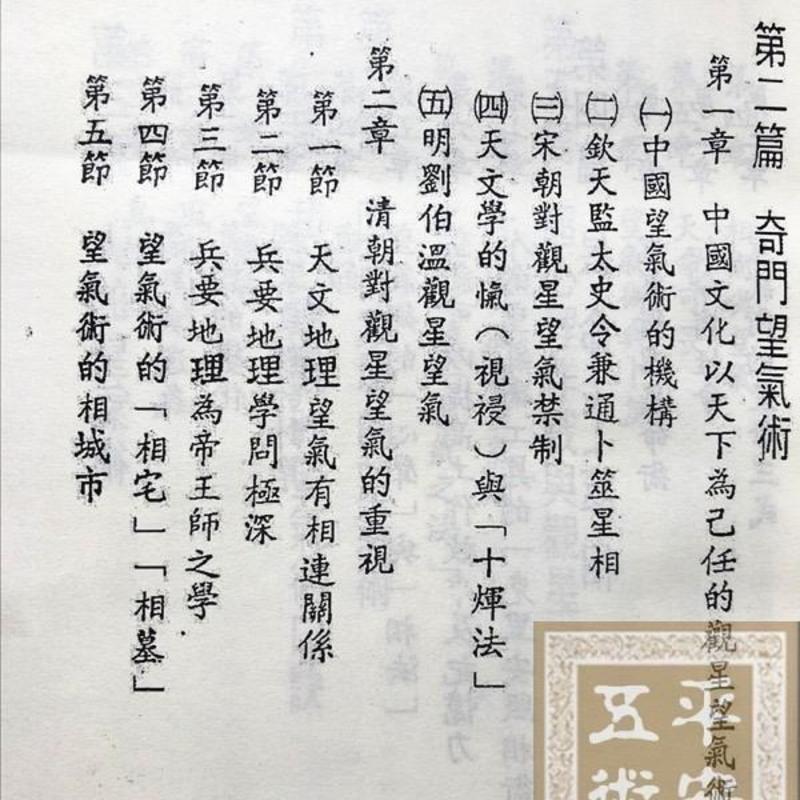 第二篇 奇門望氣術
第一章 中國文化以天下為己任的觀星望氣術
㈠中國望氣術的機構
㈡欽天監太史令兼通卜筮星相
㈢宋朝對觀星望氣禁制
㈣天文學的愾(視祲)與「十煇法」
㈤明劉伯溫觀星望氣
第二章 清朝對觀星望氣的重視
第一節 天文地理望氣有相連關係
第二節 兵要地理學問極深
第三節 兵要地理為帝王師之學
第四節 望氣術的「相宅」「相墓」
第五節 望氣術的相城市
平安
五術